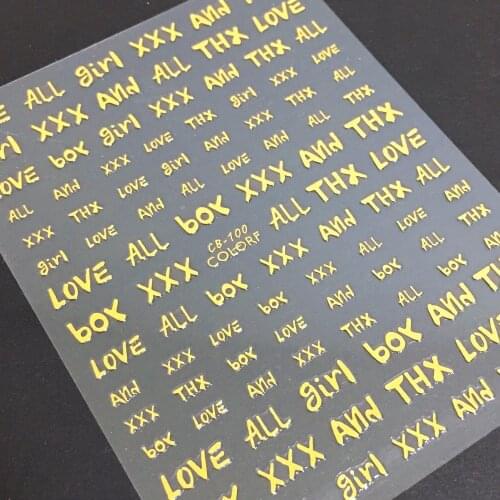 LOVE ALL girl XXX And THX LOVE
XXX And ALL THX LOVE ALL
LOVE box girl XXX And ALL THX
ALL And XXX LOVE THX girl XXX LOVE
XXX THX LOVE girl And ALL THX And
girl LOVE And ALL box XXX And THX
LOVE ALL
CB-100
COLORF
ALL And THX LOVE
box XXX
LOVE ALL box LOVE XXX And ALL
And XXX THX box LOVE And box ALL box
XXX box THX LOVE And XXX THX ALL And
LOVE ALL girl box And
LOVE ALL XXX And THX LOVE
girl XXX And